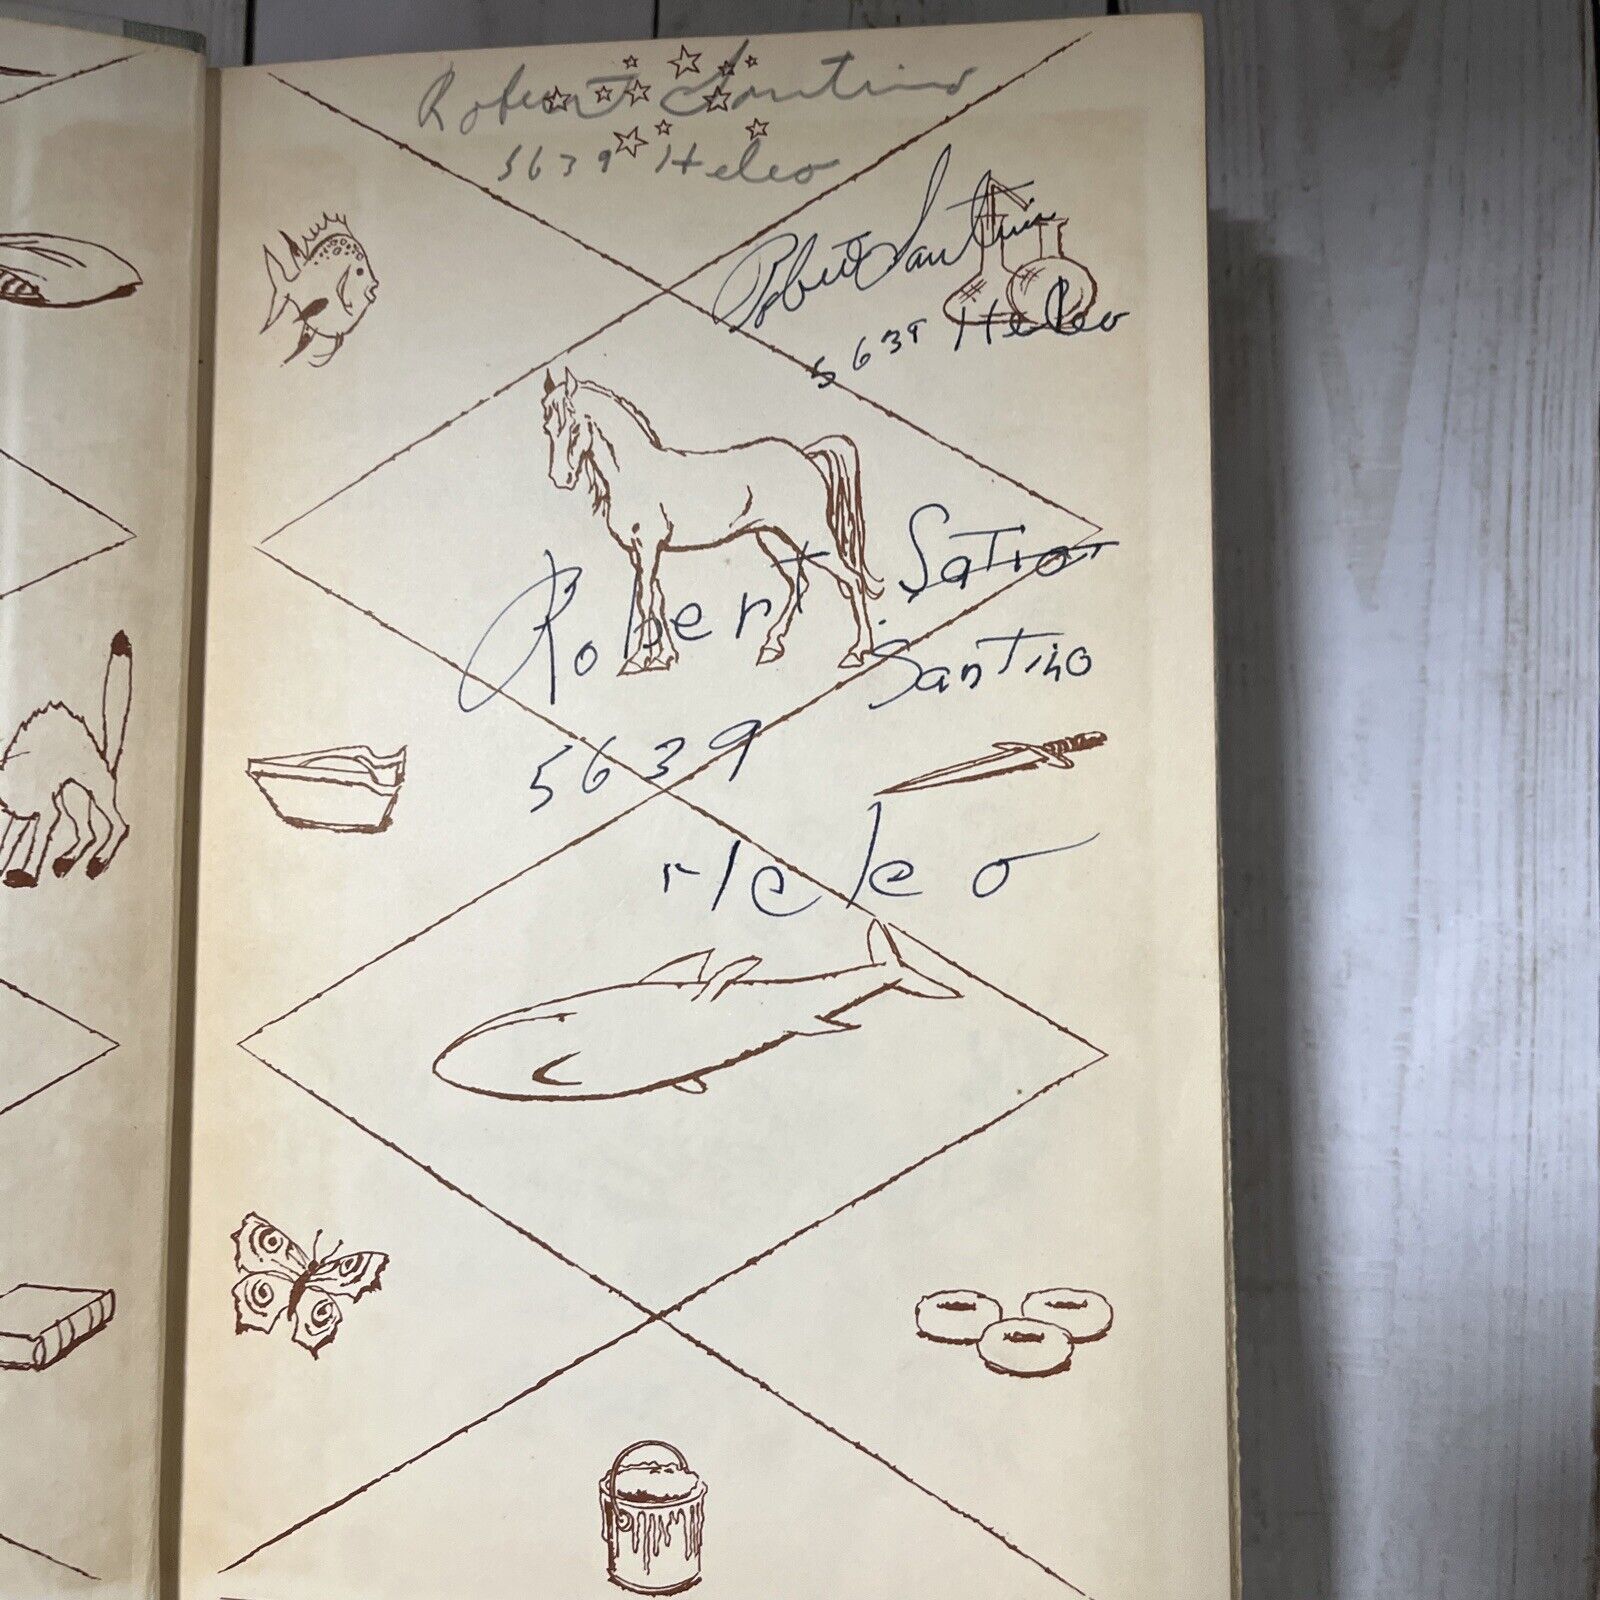 Robert Santino
5639 Heleo
Robert Santino
5639 Heleo
Robert Satior
Santino
5639
Heleo